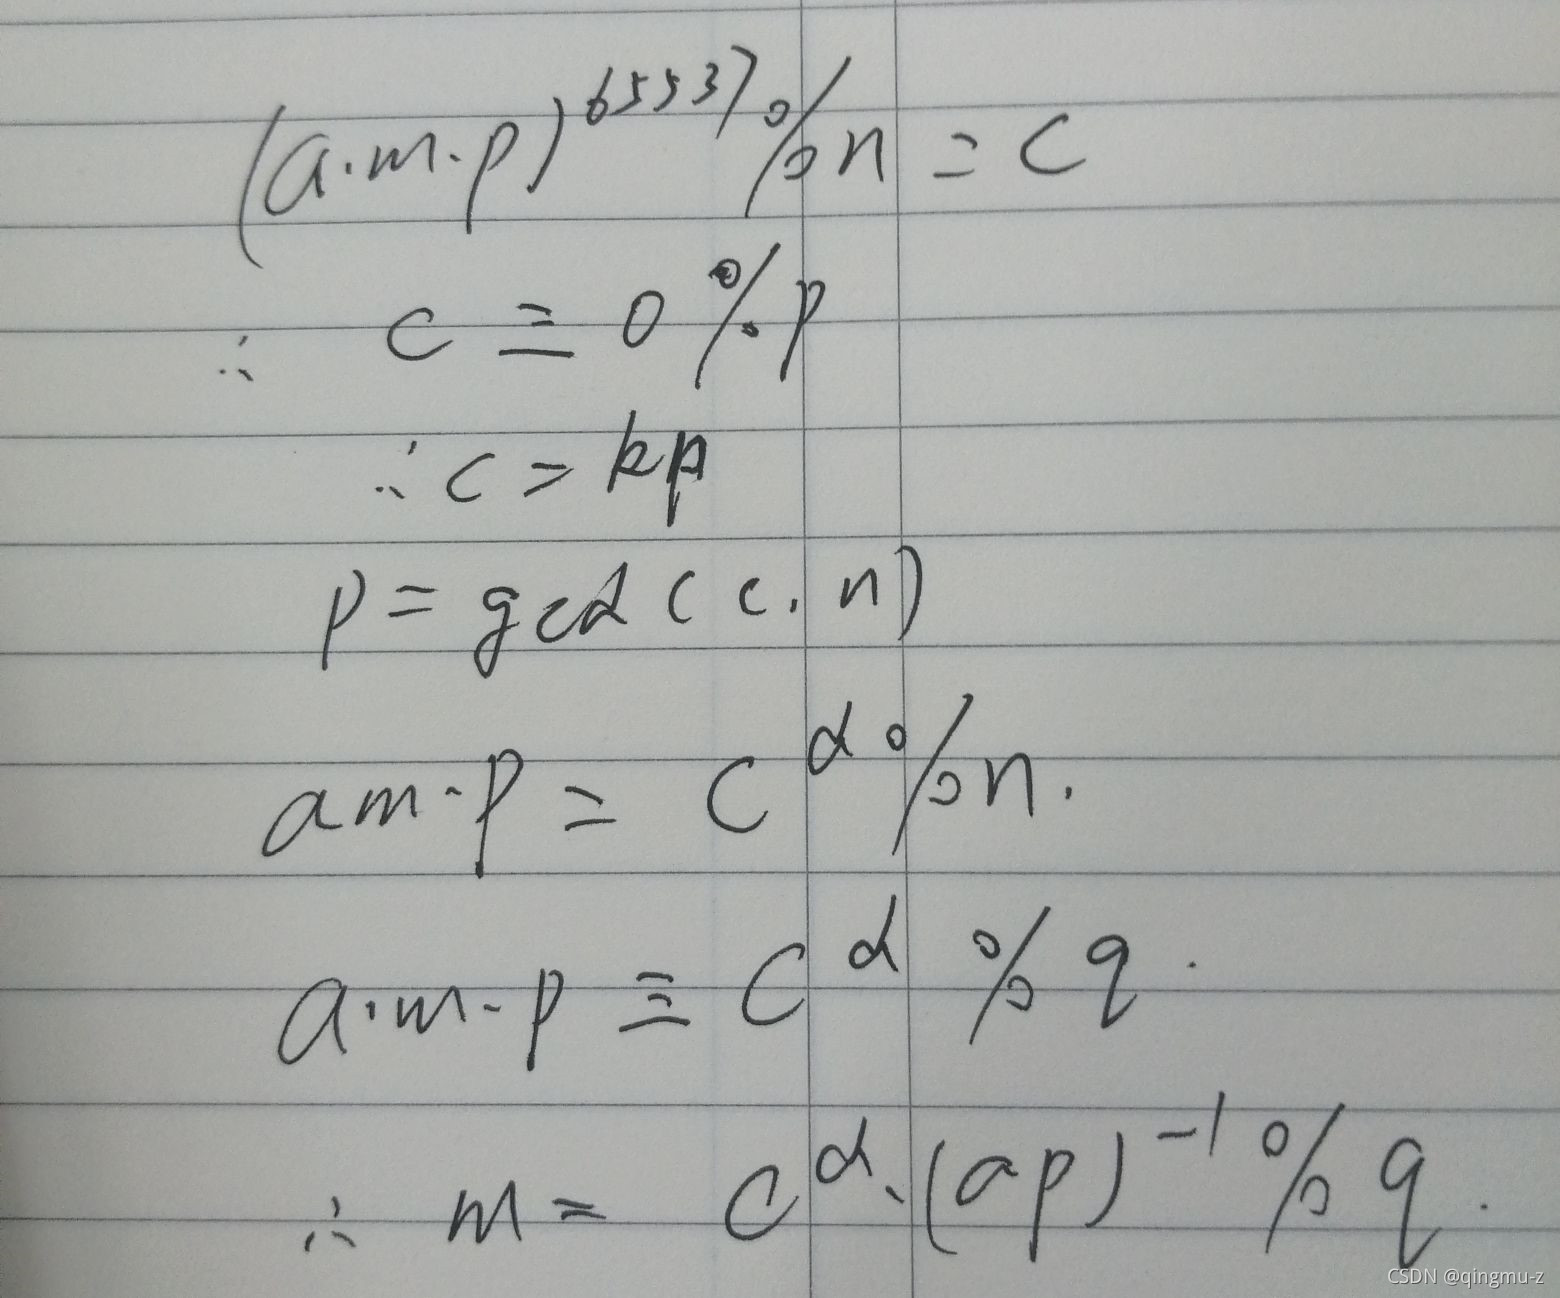 (a·m·p)^65537 % n = c
∴ c ≡ 0 % p
∴ c = kp
p = gcd(c, n)
am·p = c^d % n.
a·m·p ≡ c^d % q.
∴ m = c^d·(ap)^-1 % q.
CSDN @qingmu-z